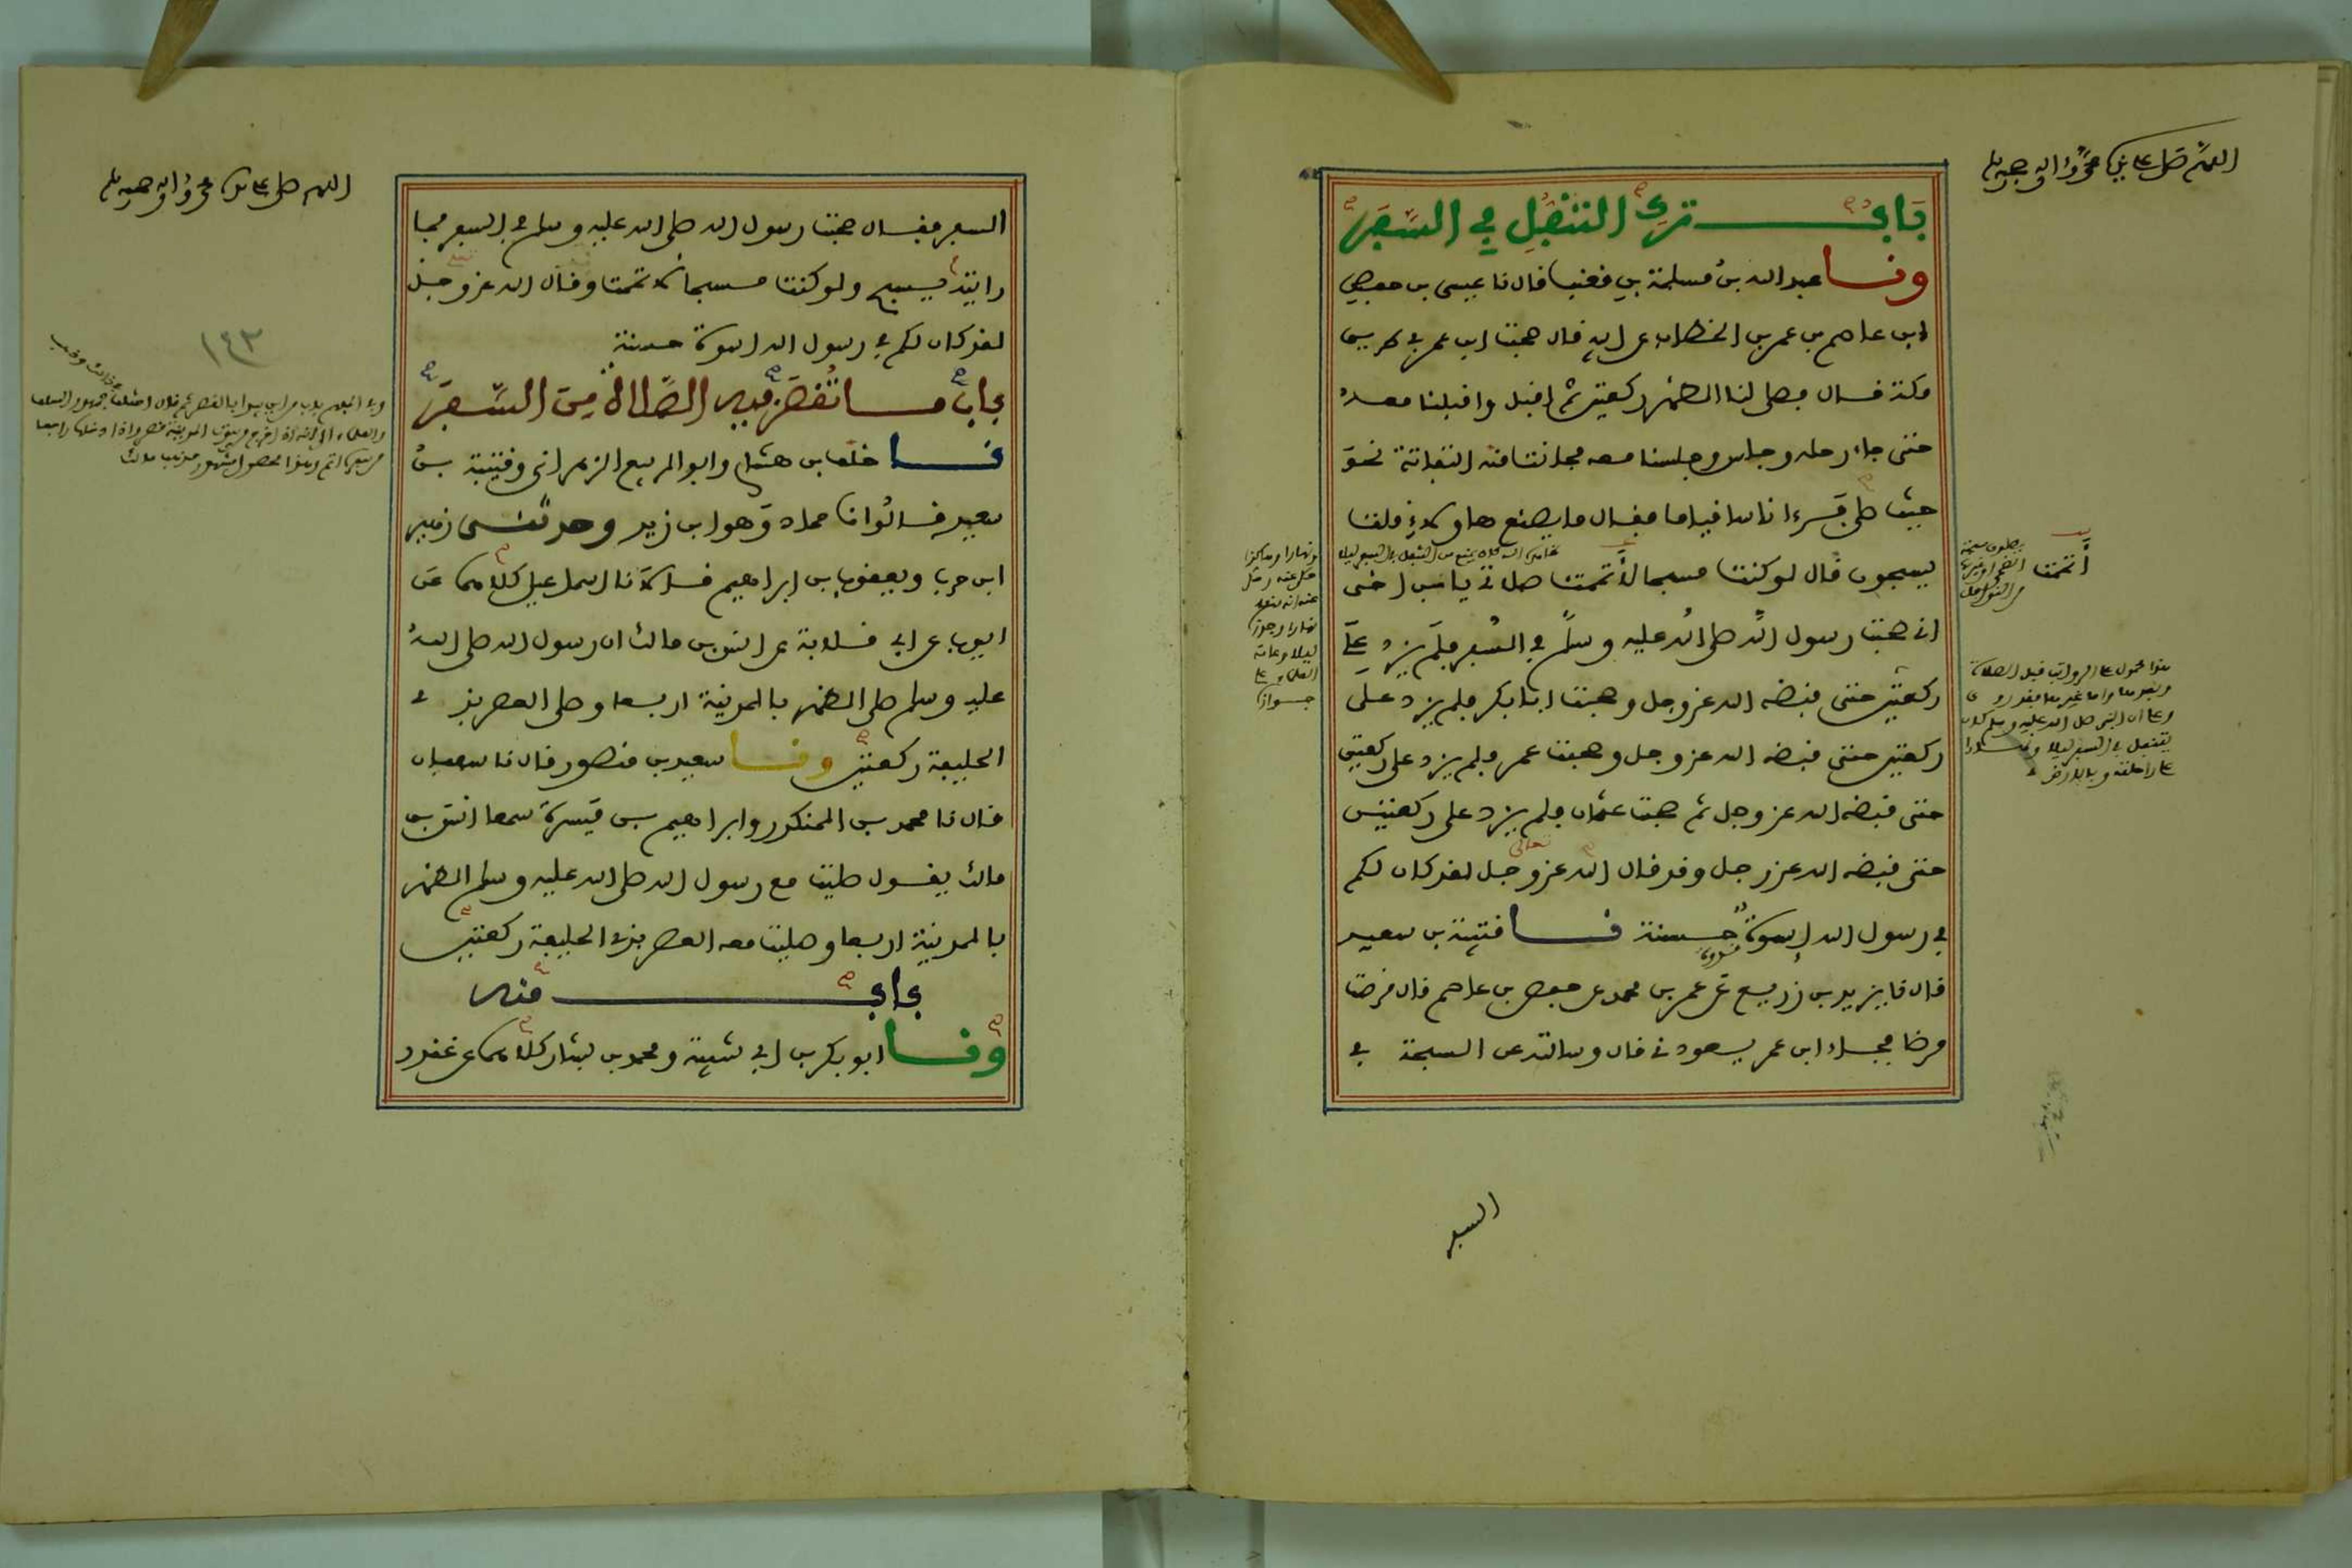 اللهم صل على نبيك محمد وآله وصحبه وسلم
باب ترك التنفل في السفر
ونا عبد الله بن مسلمة بن قعنب قال نا عيسى بن حفص
ابن عاصم بن عمر بن الخطاب عن ابيه قال صحبت ابن عمر في طريق
مكة قال فصلى لنا الظهر ركعتين ثم اقبل واقبلنا معه
حتى جاء رحله وجلس وجلسنا معه فحانت منه التفاتة نحو
حيث صلى فرءا ناسا قياما فقال ما يصنع هاولاء قلت
يسبحون قال لو كنت مسبحا لأتممت صلاتي يابن اخي
اني صحبت رسول الله صلى الله عليه وسلم في السفر فلم يزد على
ركعتين حتى قبضه الله عز وجل وصحبت ابا بكر فلم يزد على
ركعتين حتى قبضه الله عز وجل وصحبت عمر فلم يزد على ركعتين
حتى قبضه الله عز وجل ثم صحبت عثمان فلم يزد على ركعتين
حتى قبضه الله عز وجل وقد قال الله عز وجل لقد كان لكم
في رسول الله اسوة حسنة نا قتيبة بن سعيد
قال نا يزيد بن زريع عن عمر بن محمد عن حفص بن عاصم قال مرضت
مرضا فجاء ابن عمر يعودني قال وسالته عن السبحة في
أتممت
هذا محمول على الرواتب قبل الصلاة
وبعدها واما غيرها فقد روي
وعا ان النبي صلى الله عليه وسلم كان
يتنفل في السفر ليلا
على راحلته وبالارض
السفر
اللهم صل على نبيك محمد وآله وصحبه وسلم
السفر فقال صحبت رسول الله صلى الله عليه وسلم في السفر فما
رايته يسبح ولو كنت مسبحا لاتممت وقال الله عز وجل
لقد كان لكم في رسول الله اسوة حسنة
باب ما تقصر فيه الصلاة من السفر
نا خلف بن هشام وابو الربيع الزهراني وقتيبة بن
سعيد قالوا نا حماد وهو ابن زيد وحدثنى زهير
ابن حرب ويعقوب بن ابراهيم قالا نا اسماعيل كلاهما عن
ايوب عن ابي قلابة عن انس بن مالك ان رسول الله صلى الله
عليه وسلم صلى الظهر بالمدينة اربعا وصلى العصر بذي
الحليفة ركعتين ونا سعيد بن منصور قال نا سفيان
قال نا محمد بن المنكدر وابراهيم بن ميسرة سمعا انس بن
مالك يقول صليت مع رسول الله صلى الله عليه وسلم الظهر
بالمدينة اربعا وصليت معه العصر بذي الحليفة ركعتين
باب منه
ونا ابو بكر بن ابي شيبة ومحمد بن بشار كلاهما عن غندر
١٤٣